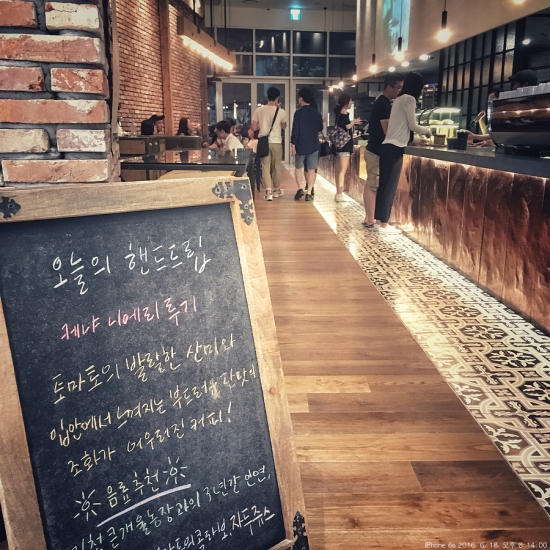 오늘의 핸드드립
케냐 니에리 투기
토마토의 발랄한 산미와
입안에서 느껴지는 부드러운 단맛의
조화가 어우러진 커피!
음료추천
큰개울농장과의 3년간 인연,
콜라보, 자두쥬스
iPhone 6s 2016. 6. 18. 오후 8:14:00